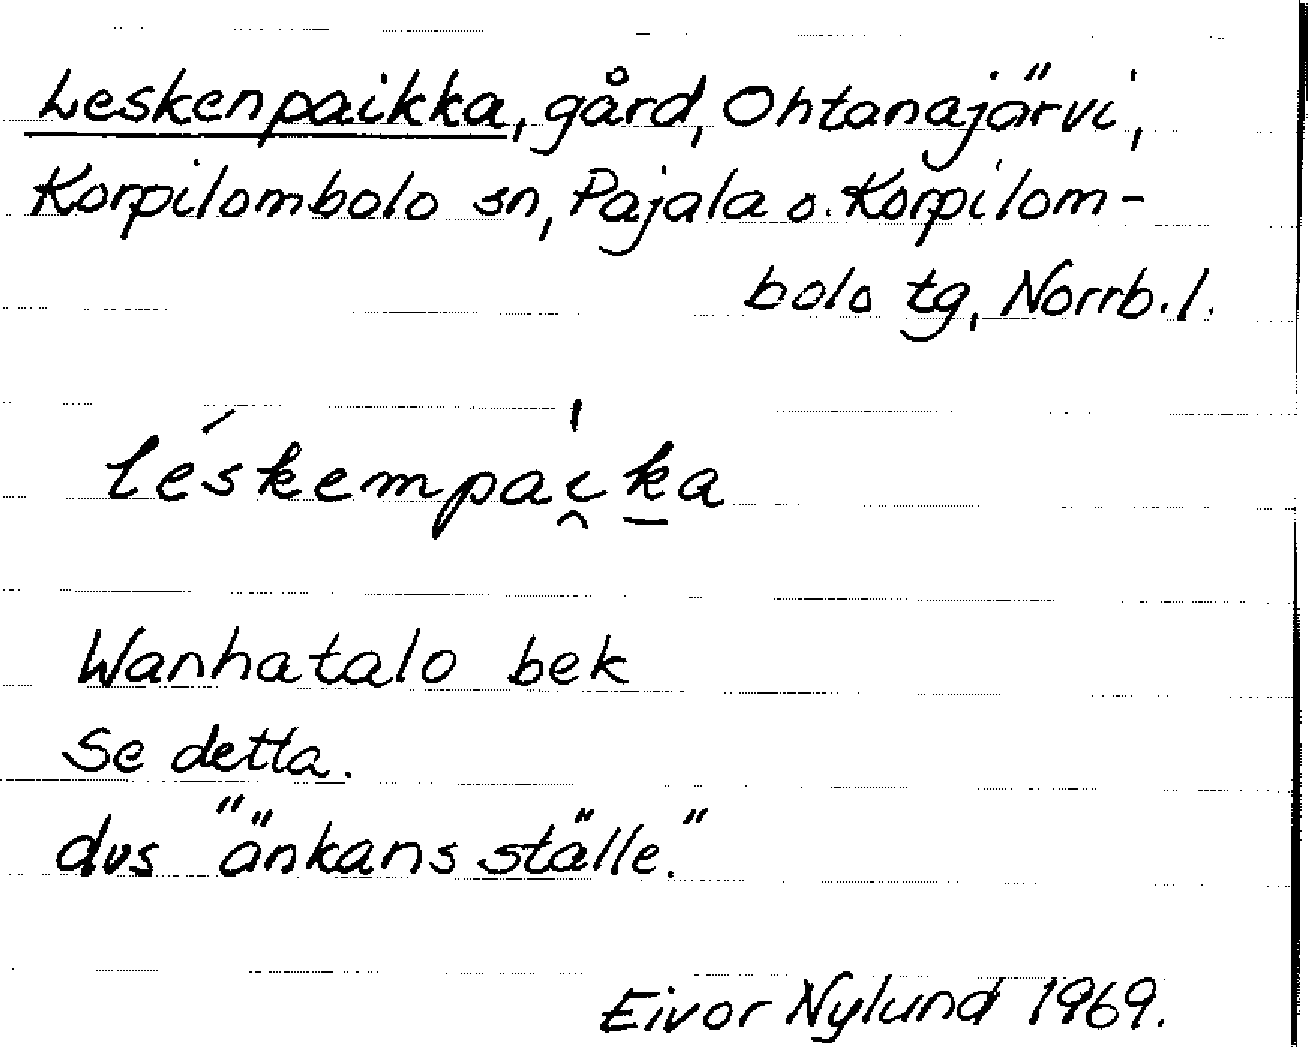 Leskenpaikka, gård, Ohtanajärvi,
Korpilombolo sn, Pajala o. Korpilom-
bolo tg, Norrb. l.
léskempai̯k̠a
Wanhatalo bek
Se detta.
dvs "änkans ställe."
Eivor Nylund 1969.